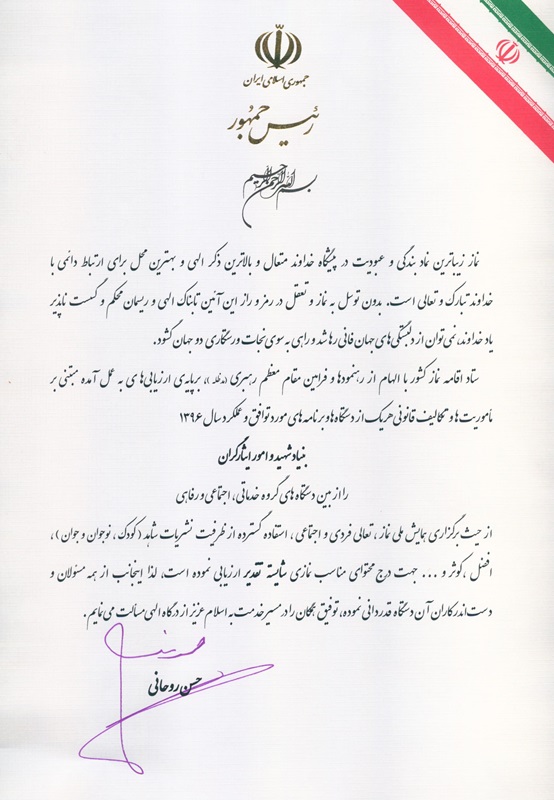 جمهوری اسلامی ایران
رئیس جمهور
بسم الله الرحمن الرحیم
نماز زیباترین نماد بندگی و عبودیت در پیشگاه خداوند متعال و بالاترین ذکر الهی و بهترین محل برای ارتباط دائمی با
خداوند تبارک و تعالی است. بدون توسل به نماز و تعقل در رمز و راز این آئین تابناک الهی و ریسمان محکم و گسست ناپذیر
یاد خداوند، نمی‌توان از دلبستگی‌های جهان فانی رها شد و راهی به سوی نجات و رستگاری دو جهان گشود.
ستاد اقامه نماز کشور با الهام از رهنمودها و فرامین مقام معظم رهبری (مدظله)، برپایه‌ی ارزیابی‌های به عمل آمده مبتنی بر
مأموریت‌ها و تکالیف قانونی هریک از دستگاه‌ها و برنامه های مورد توافق و عملکرد سال ۱۳۹۶
بنیاد شهید و امور ایثارگران
را از بین دستگاه های گروه خدماتی، اجتماعی و رفاهی
از حیث برگزاری همایش ملی نماز، تعالی فردی و اجتماعی، استفاده گسترده از ظرفیت نشریات شاهد (کودک، نوجوان و جوان)،
افضل، کوثر و ... جهت درج محتوای مناسب نمازی شایسته تقدیر ارزیابی نموده است، لذا اینجانب از همه مسئولان و
دست اندرکاران آن دستگاه قدردانی نموده، توفیق همگان را در مسیر خدمت به اسلام عزیز از درگاه الهی مسألت می نمایم.
حسن روحانی